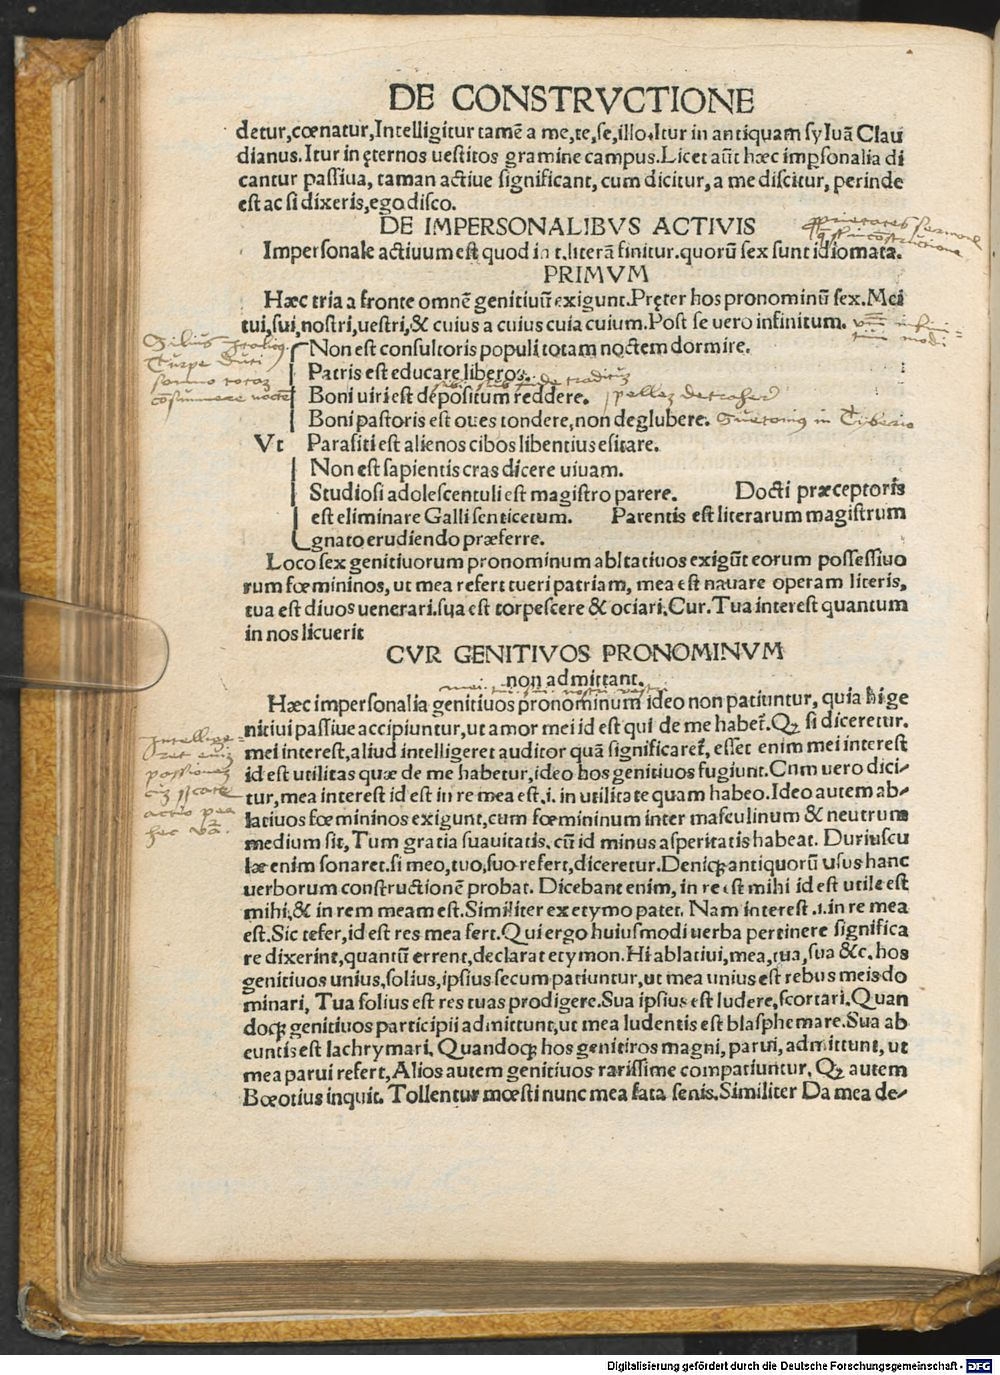 DE CONSTRVCTIONE
detur,cœnatur,Intelligitur tamē a me,te,se,illo.Itur in antiquam syluā Clau
dianus.Itur in ęternos uestitos gramine campus.Licet aūt hæc impsonalia di
cantur passiua, taman actiue significant, cum dicitur, a me discitur, perinde
est ac si dixeris,ego disco.
DE IMPERSONALIBVS ACTIVIS
Impersonale actiuum est quod in t.literā finitur.quorū sex sunt idiomata.
PRIMVM
Hæc tria a fronte omnē genitiuū exigunt.Pręter hos pronominū sex.Mei
tui,sui,nostri,uestri,& cuius a cuius cuia cuium.Post se uero infinitum.
Silius Italicus.
Turpe Duci
somno totam
consumere nocte
Non est consultoris populi totam noctem dormire.
Patris est educare liberos.
Boni uiri est depositum reddere. pellem detrahere
Boni pastoris est oues tondere,non deglubere. Suetonius in Tyberio
Vt Parasiti est alienos cibos libentius esitare.
Non est sapientis cras dicere uiuam.
Studiosi adolescentuli est magistro parere. Docti præceptoris
est eliminare Galli senticetum. Parentis est literarum magistrum
gnato erudiendo præferre.
Loco sex genitiuorum pronominum abltatiuos exigūt eorum possessiuo
rum fœmininos, ut mea refert tueri patriam, mea est nauare operam literis,
tua est diuos uenerari.sua est torpescere & ociari.Cur.Tua interest quantum
in nos licuerit
CVR GENITIVOS PRONOMINVM
non admittant.
mei. tui. sui. nostri vestri
Hæc impersonalia genitiuos pronominum ideo non patiuntur, quia hi ge
nitiui passiue accipiuntur,ut amor mei id est qui de me habet̄. Qꝫ si diceretur.
mei interest,aliud intelligeret auditor quā significaret̄, esset enim mei interest
id est utilitas quæ de me habetur,ideo hos genitiuos fugiunt.Cum uero dici-
tur,mea interest id est in re mea est.i. in utilitate quam habeo.Ideo autem ab-
latiuos fœmininos exigunt,cum fœmininum inter masculinum & neutrum
medium sit, Tum gratia suauitatis. cū id minus asperitatis habeat. Duriuscu
læ enim sonaret.si meo,tuo,suo refert,diceretur.Deniqꝫ antiquorū usus hanc
uerborum constructionē probat. Dicebant enim, in re est mihi id est utile est
mihi,& in rem meam est.Similiter ex etymo patet. Nam interest .i.in re mea
est.Sic refer,id est res mea fert.Qui ergo huiusmodi uerba pertinere significa
re dixerint,quantū errent,declarat etymon.Hi ablatiui,mea,tua,sua &c. hos
genitiuos unius,solius,ipsius secum patiuntur,ut mea unius est rebus meis do
minari, Tua solius est res tuas prodigere.Sua ipsius est ludere,scortari.Quan
doqꝫ genitiuos participii admittunt,ut mea ludentis est blasphemare.Sua ab
euntis est lachrymari. Quandoqꝫ hos genitiros magni, parui, admittunt, ut
mea parui refert,Alios autem genitiuos rarissime compatiuntur. Qꝫ autem
Bœotius inquit. Tollentur mœsti nunc mea fata senis.Similiter Da mea de-
Digitalisierung gefördert durch die Deutsche Forschungsgemeinschaft - DFG